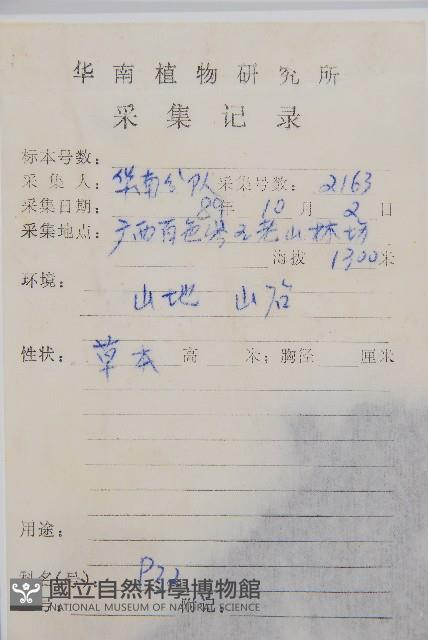 华南植物研究所
采集记录
标本号数:
采集人: 华南分队 采集号数: 2163
采集日期: 89年 10月 2日
采集地点: 广西百色 老山林场
海拔 1300米
环境: 山地 山谷
性状: 草本 高 米; 胸径 厘米
用途:
科名(号) P32
國立自然科學博物館
NATIONAL MUSEUM OF NATURAL SCIENCE
号: 附记: